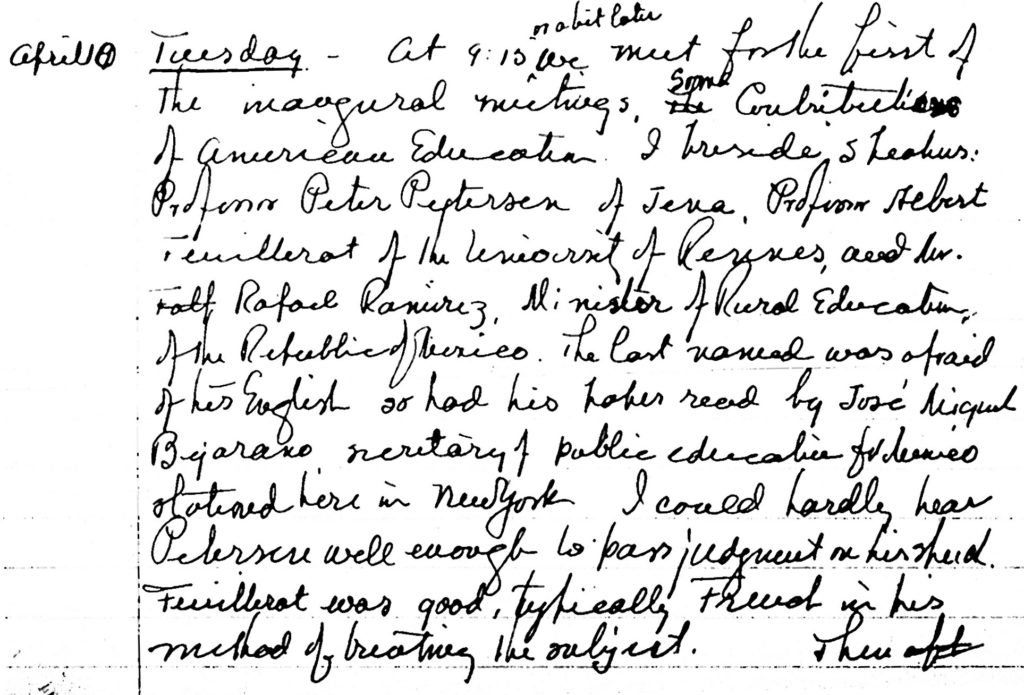 or a bit later
April 10 Tuesday - At 9:15 we meet for the first of
the inaugural meetings, Some the Contributions
of American Education. I preside, Speakers:
Professor Peter Petersen of Jena, Professor Albert
Feuillerat of the University of Rennes, and Mr.
Rafael Ramirez, Minister of Rural Education,
of the Republic of Mexico. The last named was afraid
of his English so had his paper read by José Miguel
Bejarano secretary of public education of Mexico
stationed here in New York I could hardly hear
Petersen well enough to pass judgment on his speech.
Feuillerat was good, typically French in his
method of treating the subject. Then aft